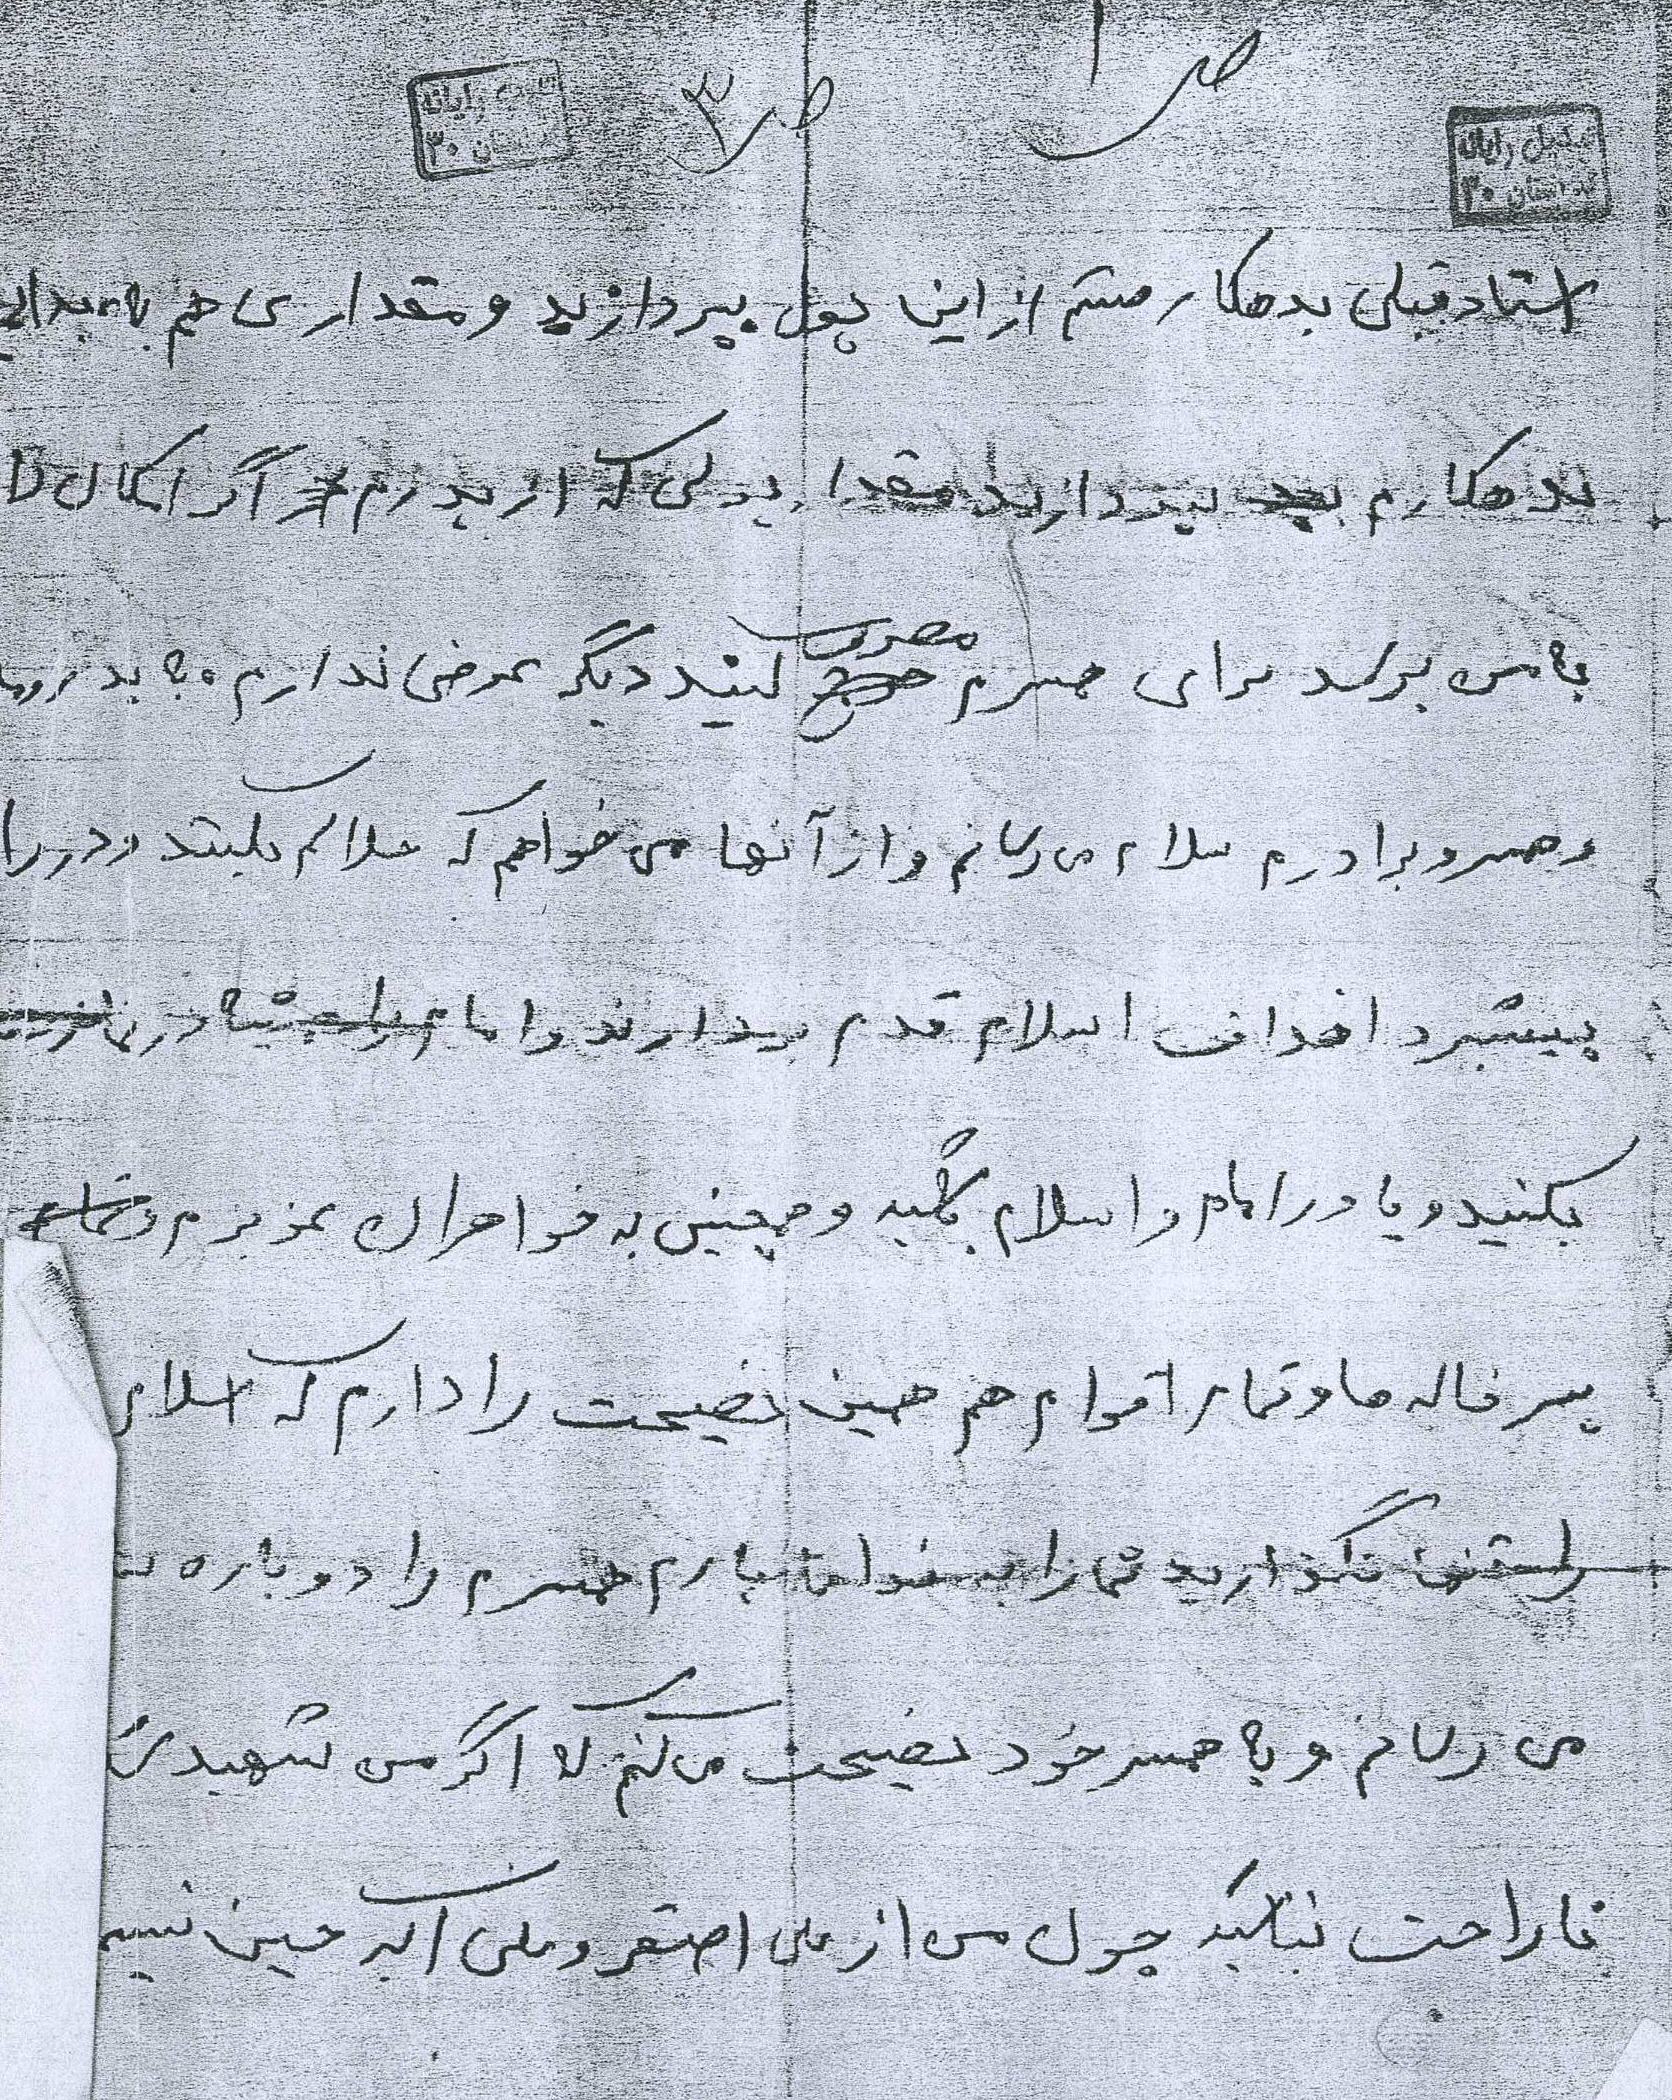 ص ۱
ص ۳
تکمیل رایانه
۳۰
رایانه
۳۰
استاد قبلی بدهکار هستم از این پول بپردازید و مقداری هم به
بدهکارم بپردازید مقدار پولی که از پدرم اگر امکان دا
به من برسد برای همسرم مصرف کنید دیگر عرضی ندارم و به پدر و ما
و همسر و برادرم سلام می رسانم و از آنها می خواهم که ملاکم نکنند و در را
پیشبرد اهداف اسلام قدم بردارند و امام را
بکنید و یاور امام و اسلام بگیید و همچنین به خواهران عزیزم و تمام
پسر خاله ها و تمام اقوام هم همین نصیحت را دارم که اسلام
را تنها نگذارید همسرم را دوباره
می رسانم و به همسر خود نصیحت می کنم که اگر من شهید ش
ناراحت نباشید چون من از علی اصغر و علی اکبر حسین نیسم